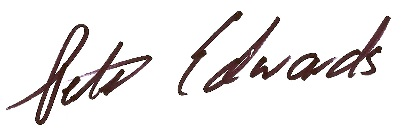 Pete Edwards